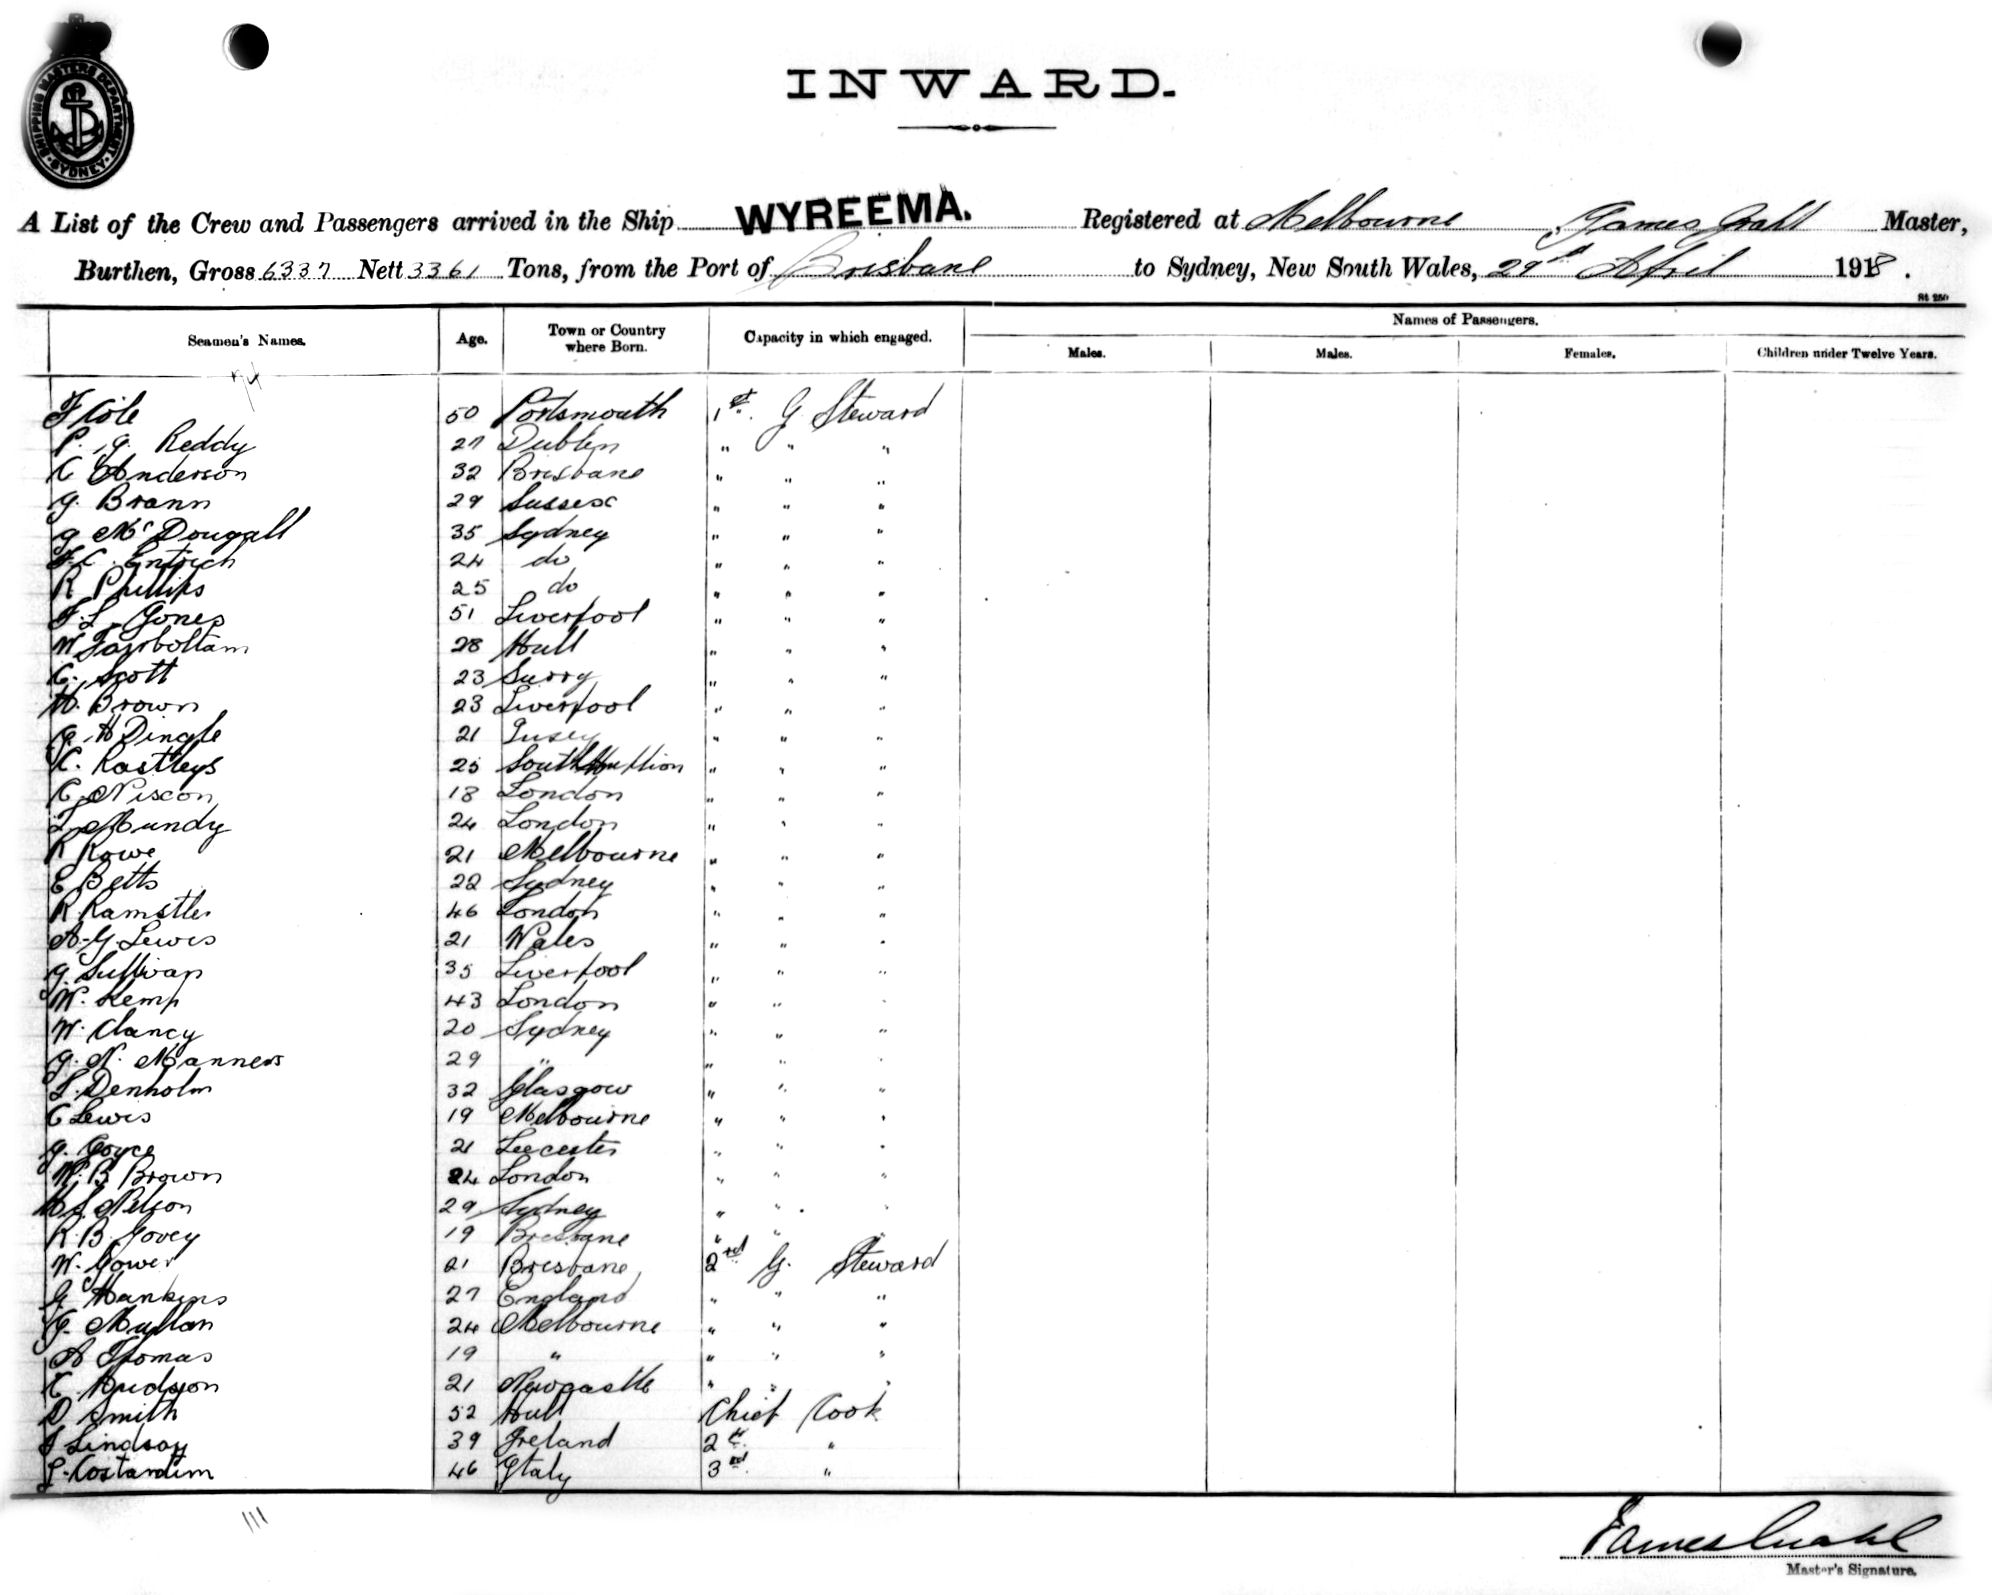 SHIPPING MASTERS DEPARTMENT. SYDNEY
INWARD.
A List of the Crew and Passengers arrived in the Ship WYREEMA. Registered at Melbourne James Grahl Master,
Burthen, Gross 6337 Nett 3361 Tons, from the Port of Brisbane to Sydney, New South Wales, 29th April 1918.
St 250
Seamen's Names. Age. Town or Country where Born. Capacity in which engaged. Names of Passengers.
Males. Males. Females. Children under Twelve Years.
74
F Cole 50 Portsmouth 1st. G Steward
P. G. Reddy 27 Dublin " " "
C Anderson 32 Brisbane " " "
G. Brann 29 Sussex " " "
G McDougall 35 Sydney " " "
F. C. Entrich 24 do " " "
R Phillips 25 do " " "
F. L. Jones 51 Liverpool " " "
W 28 Hull " " "
C. Scott 23 Surry " " "
H. Brown 23 Liverpool " " "
G. H Dingle 21 " " "
C. 25 " " "
C. Niscon 18 London " " "
L. Mundy 24 London " " "
R Rowe 21 Melbourne " " "
E Betts 22 Sydney " " "
R. 46 London " " "
A. G. Lewis 21 Wales " " "
G. Sullivan 35 Liverpool " " "
W. Kemp 43 London " " "
W. Clancy 20 Sydney " " "
G. N. Manners 29 " " " "
L. Denholm 32 Glasgow " " "
C Lewis 19 Melbourne " " "
G. Joyce 21 Leecester " " "
W. B. Brown 24 London " " "
H S. Nelson 29 Sydney " " "
R. B. Govey 19 Brisbane " " "
W. Gower 21 Brisbane 2nd G. Steward
G Hankins 27 England " " "
G. Mullan 24 Melbourne " " "
A Thomas 19 " " " "
C. Hudson 21 Newcastle " " "
D Smith 52 Hull Chief Cook
J Lindsay 39 Ireland 2nd "
L. Costardim 46 Italy 3rd "
111
James Grahl
Master's Signature.